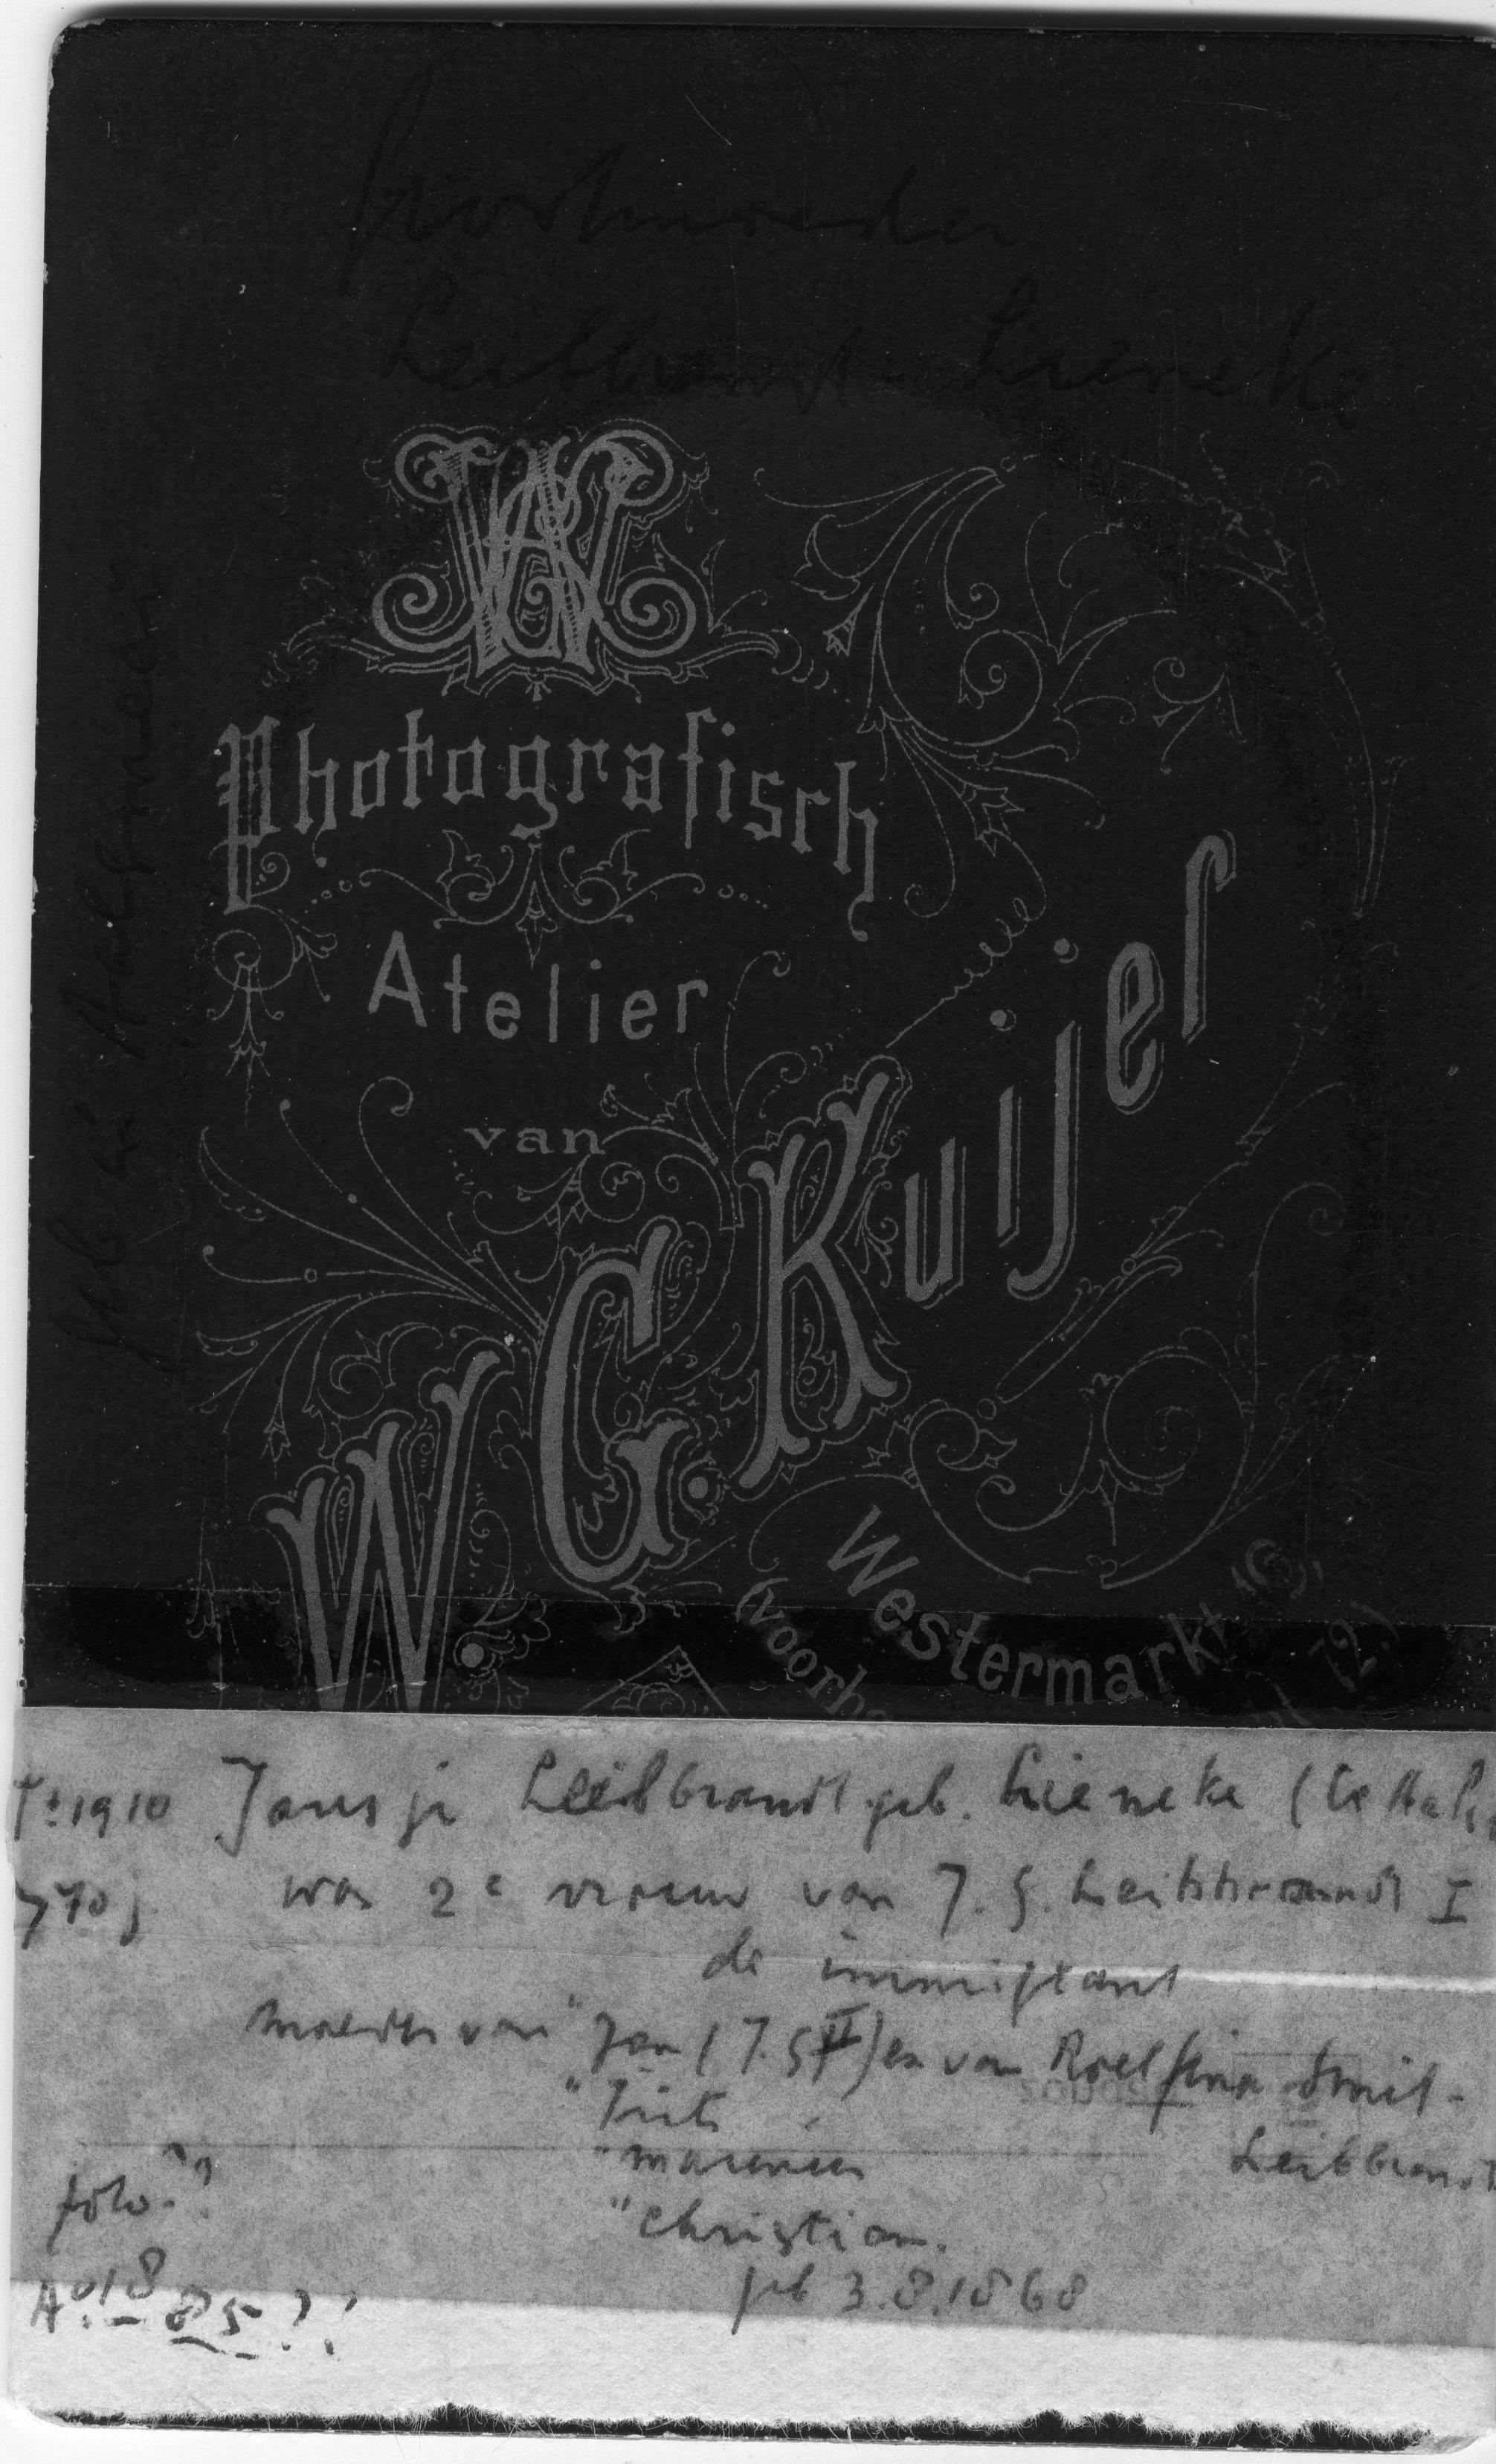 Grootmoeder
Leibbrandt - Lieneke
WGK
Photografisch
Atelier
van
W. G. Kuijer
Westermarkt
(voorh 72.)
†: 1910 Jansje Leibbrandt geb. Lieneke
70 j. was 2e vrouw van J. G. Leibbrandt I
de immigrant
moeder van "Jan (J. G. II) en van Roelfina Smit-
" Frits Leibbrandt
" marinus
" Christian.
geb 3.8.1868
foto-??
Ao. 18
85??